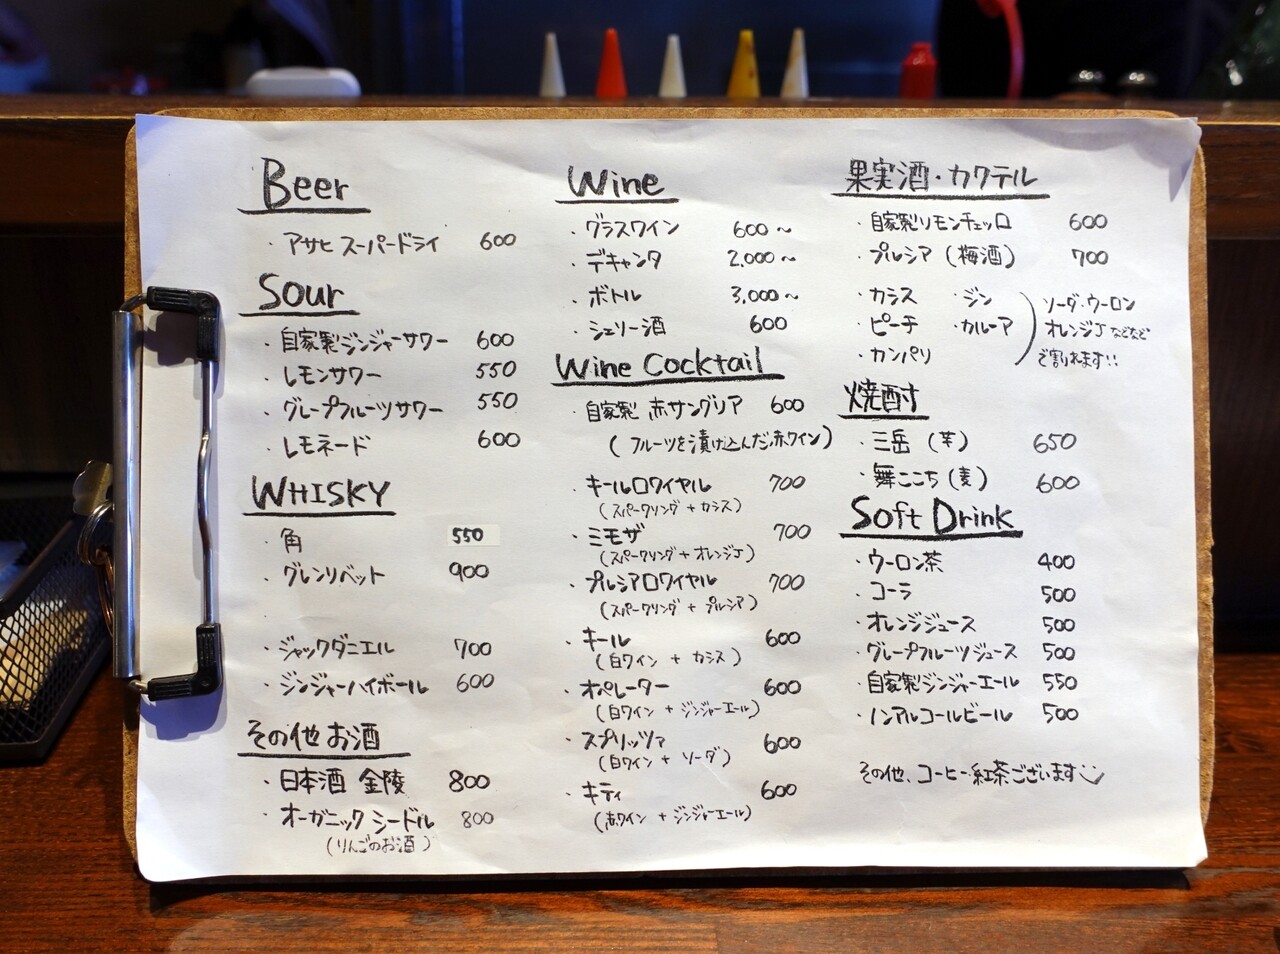 Beer
・アサヒ スーパードライ 600
Sour
・自家製ジンジャーサワー 600
・レモンサワー 550
・グレープフルーツサワー 550
・レモネード 600
WHISKY
・角 550
・グレンリベット 900
・ジャックダニエル 700
・ジンジャーハイボール 600
その他お酒
・日本酒 金陵 800
・オーガニック シードル 800
(りんごのお酒)
Wine
・グラスワイン 600~
・デキャンタ 2,000~
・ボトル 3,000~
・シェリー酒 600
Wine Cocktail
・自家製 赤サングリア 600
(フルーツを漬け込んだ赤ワイン)
・キールロワイヤル 700
(スパークリング + カシス)
・ミモザ 700
(スパークリング + オレンジJ)
・プルシアロワイヤル 700
(スパークリング + プルシア)
・キール 600
(白ワイン + カシス)
・オペレーター 600
(白ワイン + ジンジャーエール)
・スプリッツァ 600
(白ワイン + ソーダ)
・キティ 600
(赤ワイン + ジンジャーエール)
果実酒・カクテル
・自家製リモンチェッロ 600
・プルシア (梅酒) 700
・カシス ・ジン
・ピーチ ・カルーア
・カンパリ
ソーダ・ウーロン
オレンジJ などなど
で割れます!!
焼酎
・三岳 (芋) 650
・舞ここち (麦) 600
Soft Drink
・ウーロン茶 400
・コーラ 500
・オレンジジュース 500
・グレープフルーツジュース 500
・自家製ジンジャーエール 550
・ノンアルコールビール 500
その他、コーヒー・紅茶ございます